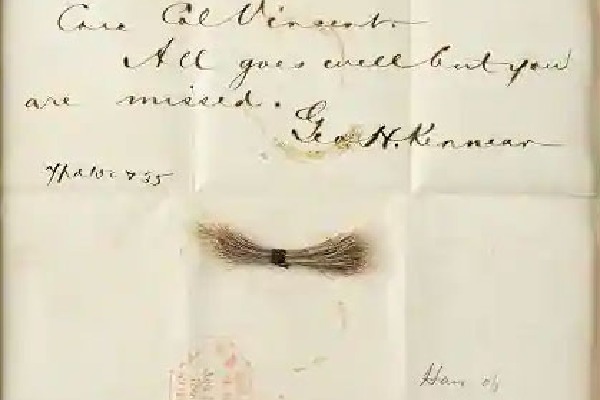 Care Col Vincent
All goes well but you
are missed.
Geo H. Kennear
Hair of